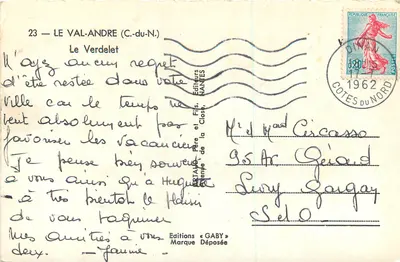 23 — LE VAL-ANDRE (C.-du-N.)
Le Verdelet
N'ayez aucun regret
d'être restée dans votre
ville car le temps ne
veut absolument pas
favoriser les vacances
Je pense bien souvent
à vous ainsi qu'à Huguette
- à très bientôt le plaisir
de vous taquiner
Mes amitiés à vous
deux. — Jannie. —
Editions « GABY »
Marque Déposée
Père et Fils, Editeurs
NANTES
DINAN
1962
COTES DU NORD
0,20
Mr et Mad Circasso
95 Av Gérard
Livry Gargan
S et O